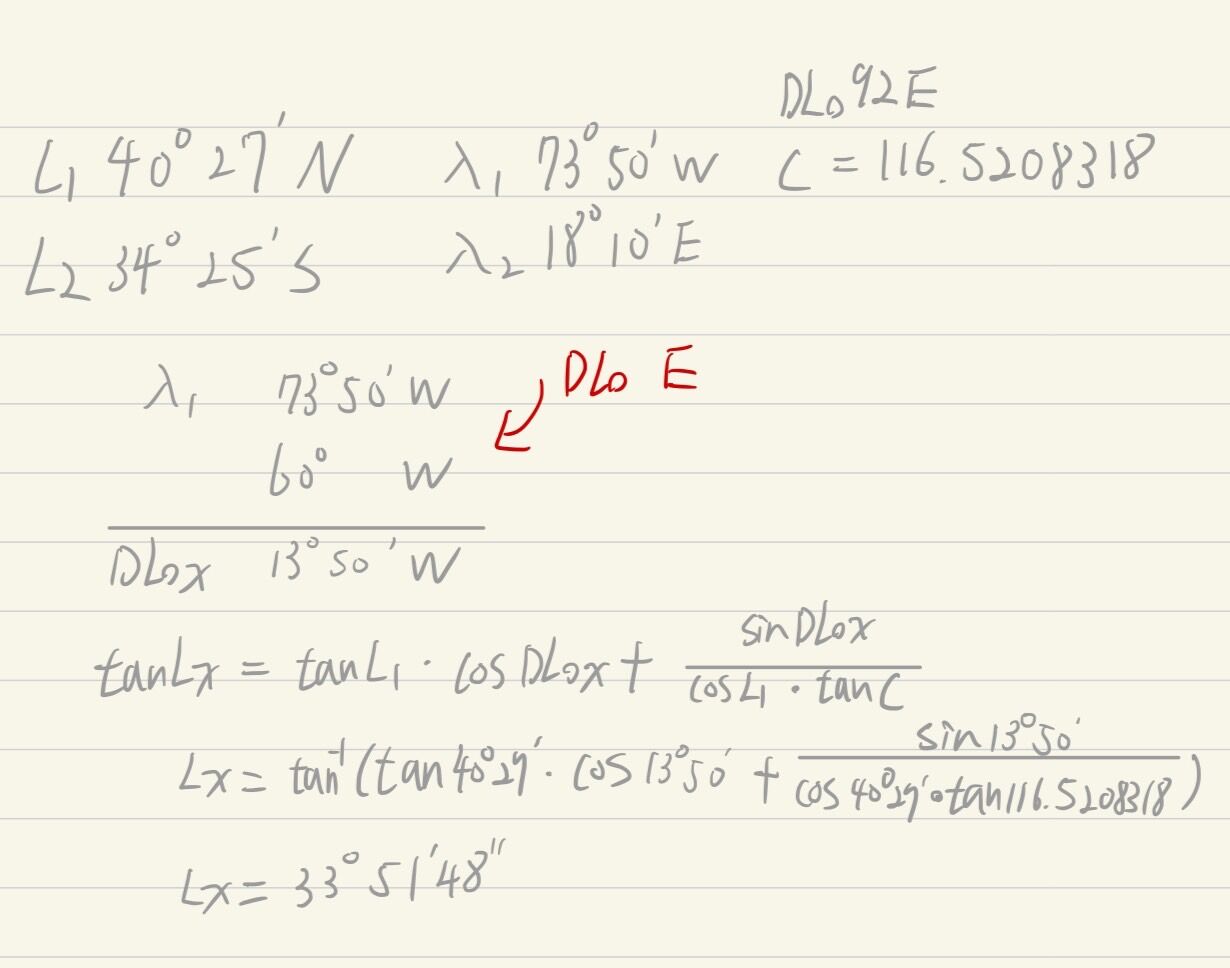 DLo 92E
L₁ 40° 27' N λ₁ 73° 50' W C = 116.5208318
L₂ 34° 25' S λ₂ 18° 10' E
λ₁ 73° 50' W DLo E
60° W
DLox 13° 50' W
tanLx = tanL₁ · cosDLox + sinDLox / cosL₁ · tanC
Lx = tan⁻¹(tan40°29' · cos13°50' + sin13°50' / cos40°29' · tan116.5208318)
Lx = 33° 51' 48"